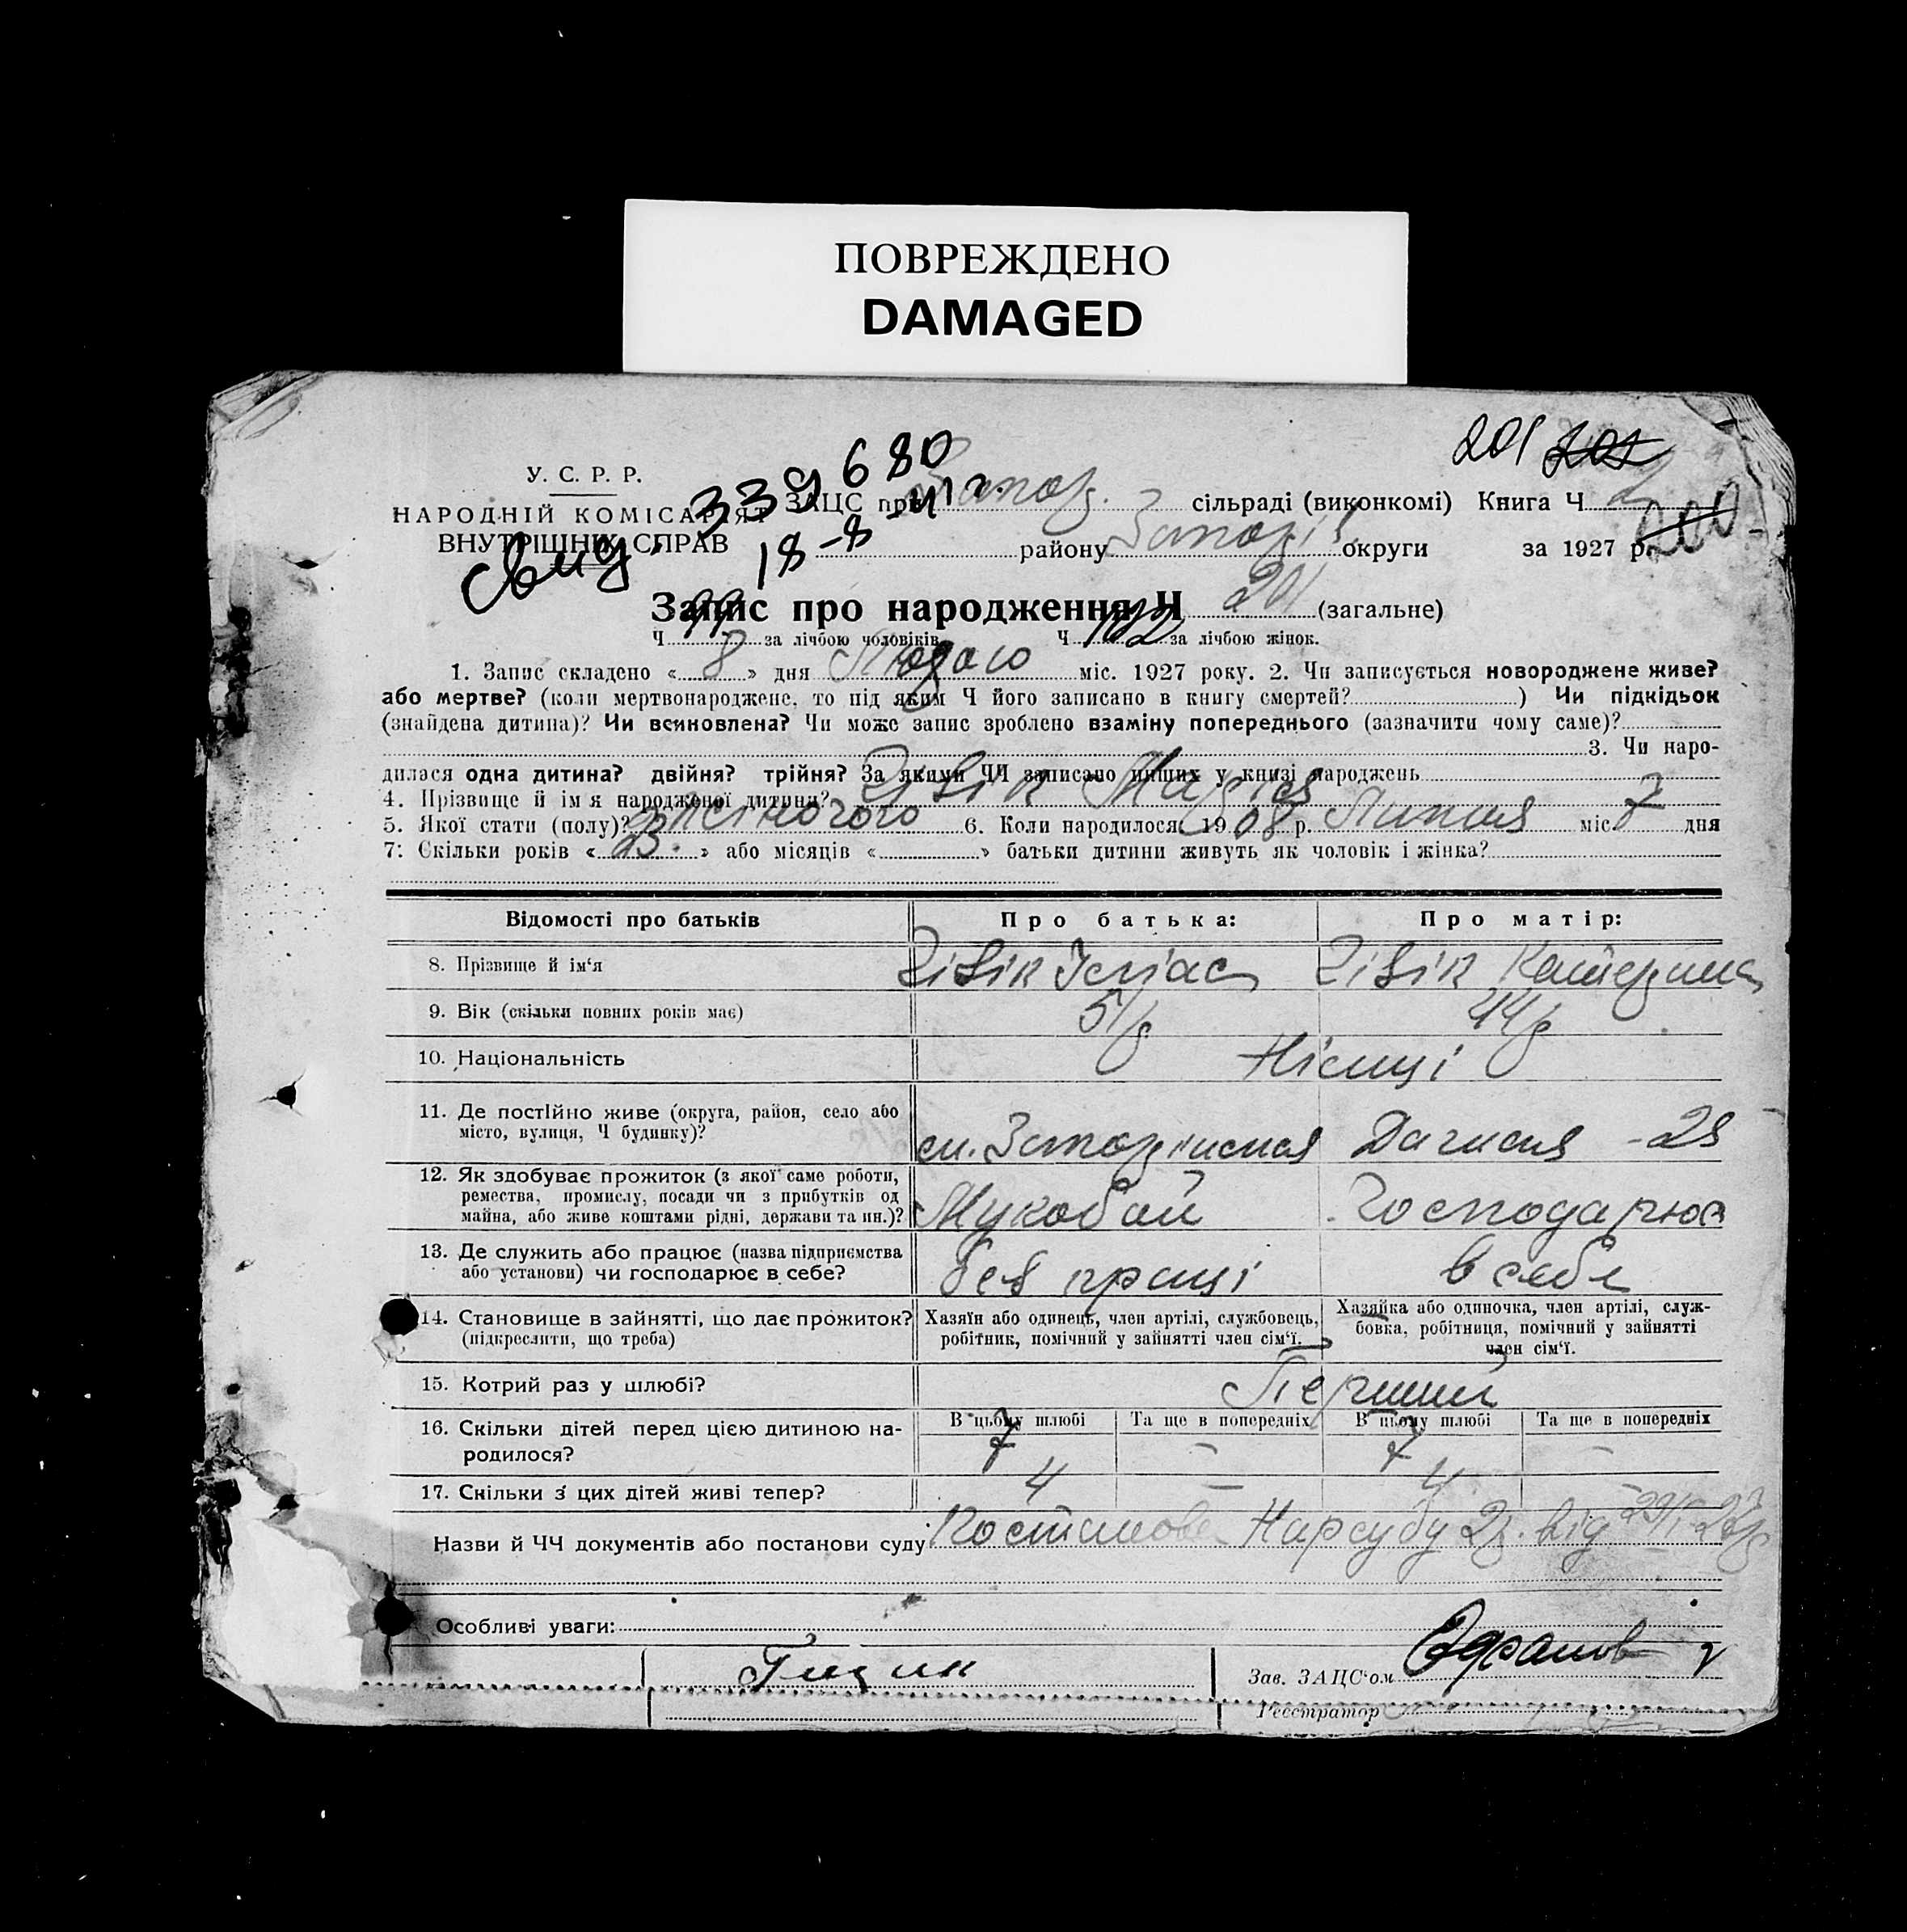 ПОВРЕЖДЕНО
DAMAGED
201
У. С. Р. Р.
НАРОДНІЙ КОМІСАРІЯТ
ВНУТРІШНІХ СПРАВ
339680
18-8-41 г.
ЗАЦС при Запор. сільраді (виконкомі) Книга Ч 2
району Запоріз. округи за 1927 р.
Запис про народження Ч 201 (загальне)
Ч 99 за лічбою чоловіків Ч 102 за лічбою жінок.
1. Запис складено « 8 » дня Лютого міс. 1927 року. 2. Чи записується новороджене живе?
або мертве? (коли мертвонароджене, то під яким Ч його записано в книгу смертей? ) Чи підкідьок
(знайдена дитина)? Чи всиновлена? Чи може запис зроблено взаміну попереднього (зазначити чому саме)?
3. Чи наро-
дилася одна дитина? двійня? трійня? За якими ЧЧ записано инших у книзі народжень
4. Прізвище й ім'я народженої дитини? Марія
5. Якої стати (полу)? жіночого 6. Коли народилося 1908 р. Липня міс. 7 дня
7: Скільки років « 23. » або місяців « » батьки дитини живуть як чоловік і жінка?
Відомості про батьків Про батька: Про матір:
8. Прізвище й ім'я Катерина
9. Вік (скільки повних років має) 51 р 44 р
10. Національність Німці
11. Де постійно живе (округа, район, село або
місто, вулиця, Ч будинку)? м. Запоріжжя
12. Як здобуває прожиток (з якої саме роботи,
ремества, промислу, посади чи з прибутків од
майна, або живе коштами рідні, держави та ин.)? Господарює
13. Де служить або працює (назва підприємства
або установи) чи господарює в себе? без праці в себе
14. Становище в зайнятті, що дає прожиток?
(підкреслити, що треба)
Хазяїн або одинець, член артілі, службовець,
робітник, помічний у зайнятті член сім'ї.
Хазяйка або одиночка, член артілі, служ-
бовка, робітниця, помічний у зайнятті
член сім'ї.
15. Котрий раз у шлюбі? Перший
16. Скільки дітей перед цією дитиною на-
родилося?
В цьому шлюбі Та ще в попередніх В цьому шлюбі Та ще в попередніх
7 — 7 —
17. Скільки з цих дітей живі тепер? 4 — 4 —
Назви й ЧЧ документів або постанови суду Постанова Нарсуду 2 р. від 29/I-27 р
Особливі уваги:
Зав. ЗАЦС'ом
Реєстратор